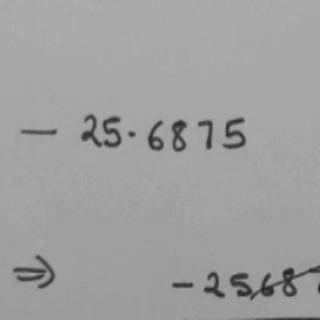 - 25.6875
⇒ - 2568